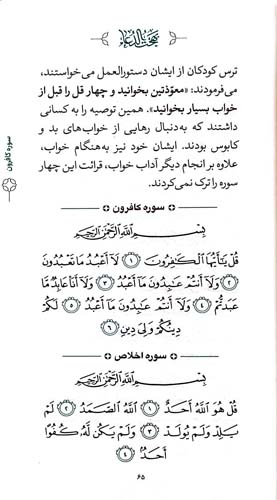 ترس کودکان از ایشان دستورالعمل می‌خواستند،
می‌فرمودند: «معوّذتین بخوانید و چهار قل را قبل از
خواب بسیار بخوانید». همین توصیه را به کسانی
داشتند که به‌دنبال رهایی از خواب‌های بد و
کابوس بودند. ایشان خود نیز به‌هنگام خواب،
علاوه بر انجام دیگر آداب خواب، قرائت این چهار
سوره را ترک نمی‌کردند.
سوره کافرون
سوره کافرون
بِسْمِ اللَّهِ الرَّحْمَٰنِ الرَّحِيمِ
قُلْ يَٰٓأَيُّهَا ٱلْكَٰفِرُونَ ﴿١﴾ لَآ أَعْبُدُ مَا تَعْبُدُونَ
﴿٢﴾ وَلَآ أَنتُمْ عَٰبِدُونَ مَآ أَعْبُدُ ﴿٣﴾ وَلَآ أَنَا۠ عَابِدٌ مَّا
عَبَدتُّمْ ﴿٤﴾ وَلَآ أَنتُمْ عَٰبِدُونَ مَآ أَعْبُدُ ﴿٥﴾ لَكُمْ
دِينُكُمْ وَلِىَ دِينِ ﴿٦﴾
سوره اخلاص
بِسْمِ اللَّهِ الرَّحْمَٰنِ الرَّحِيمِ
قُلْ هُوَ ٱللَّهُ أَحَدٌ ﴿١﴾ ٱللَّهُ ٱلصَّمَدُ ﴿٢﴾ لَمْ
يَلِدْ وَلَمْ يُولَدْ ﴿٣﴾ وَلَمْ يَكُن لَّهُۥ كُفُوًا
أَحَدٌۢ ﴿٤﴾
۶۵